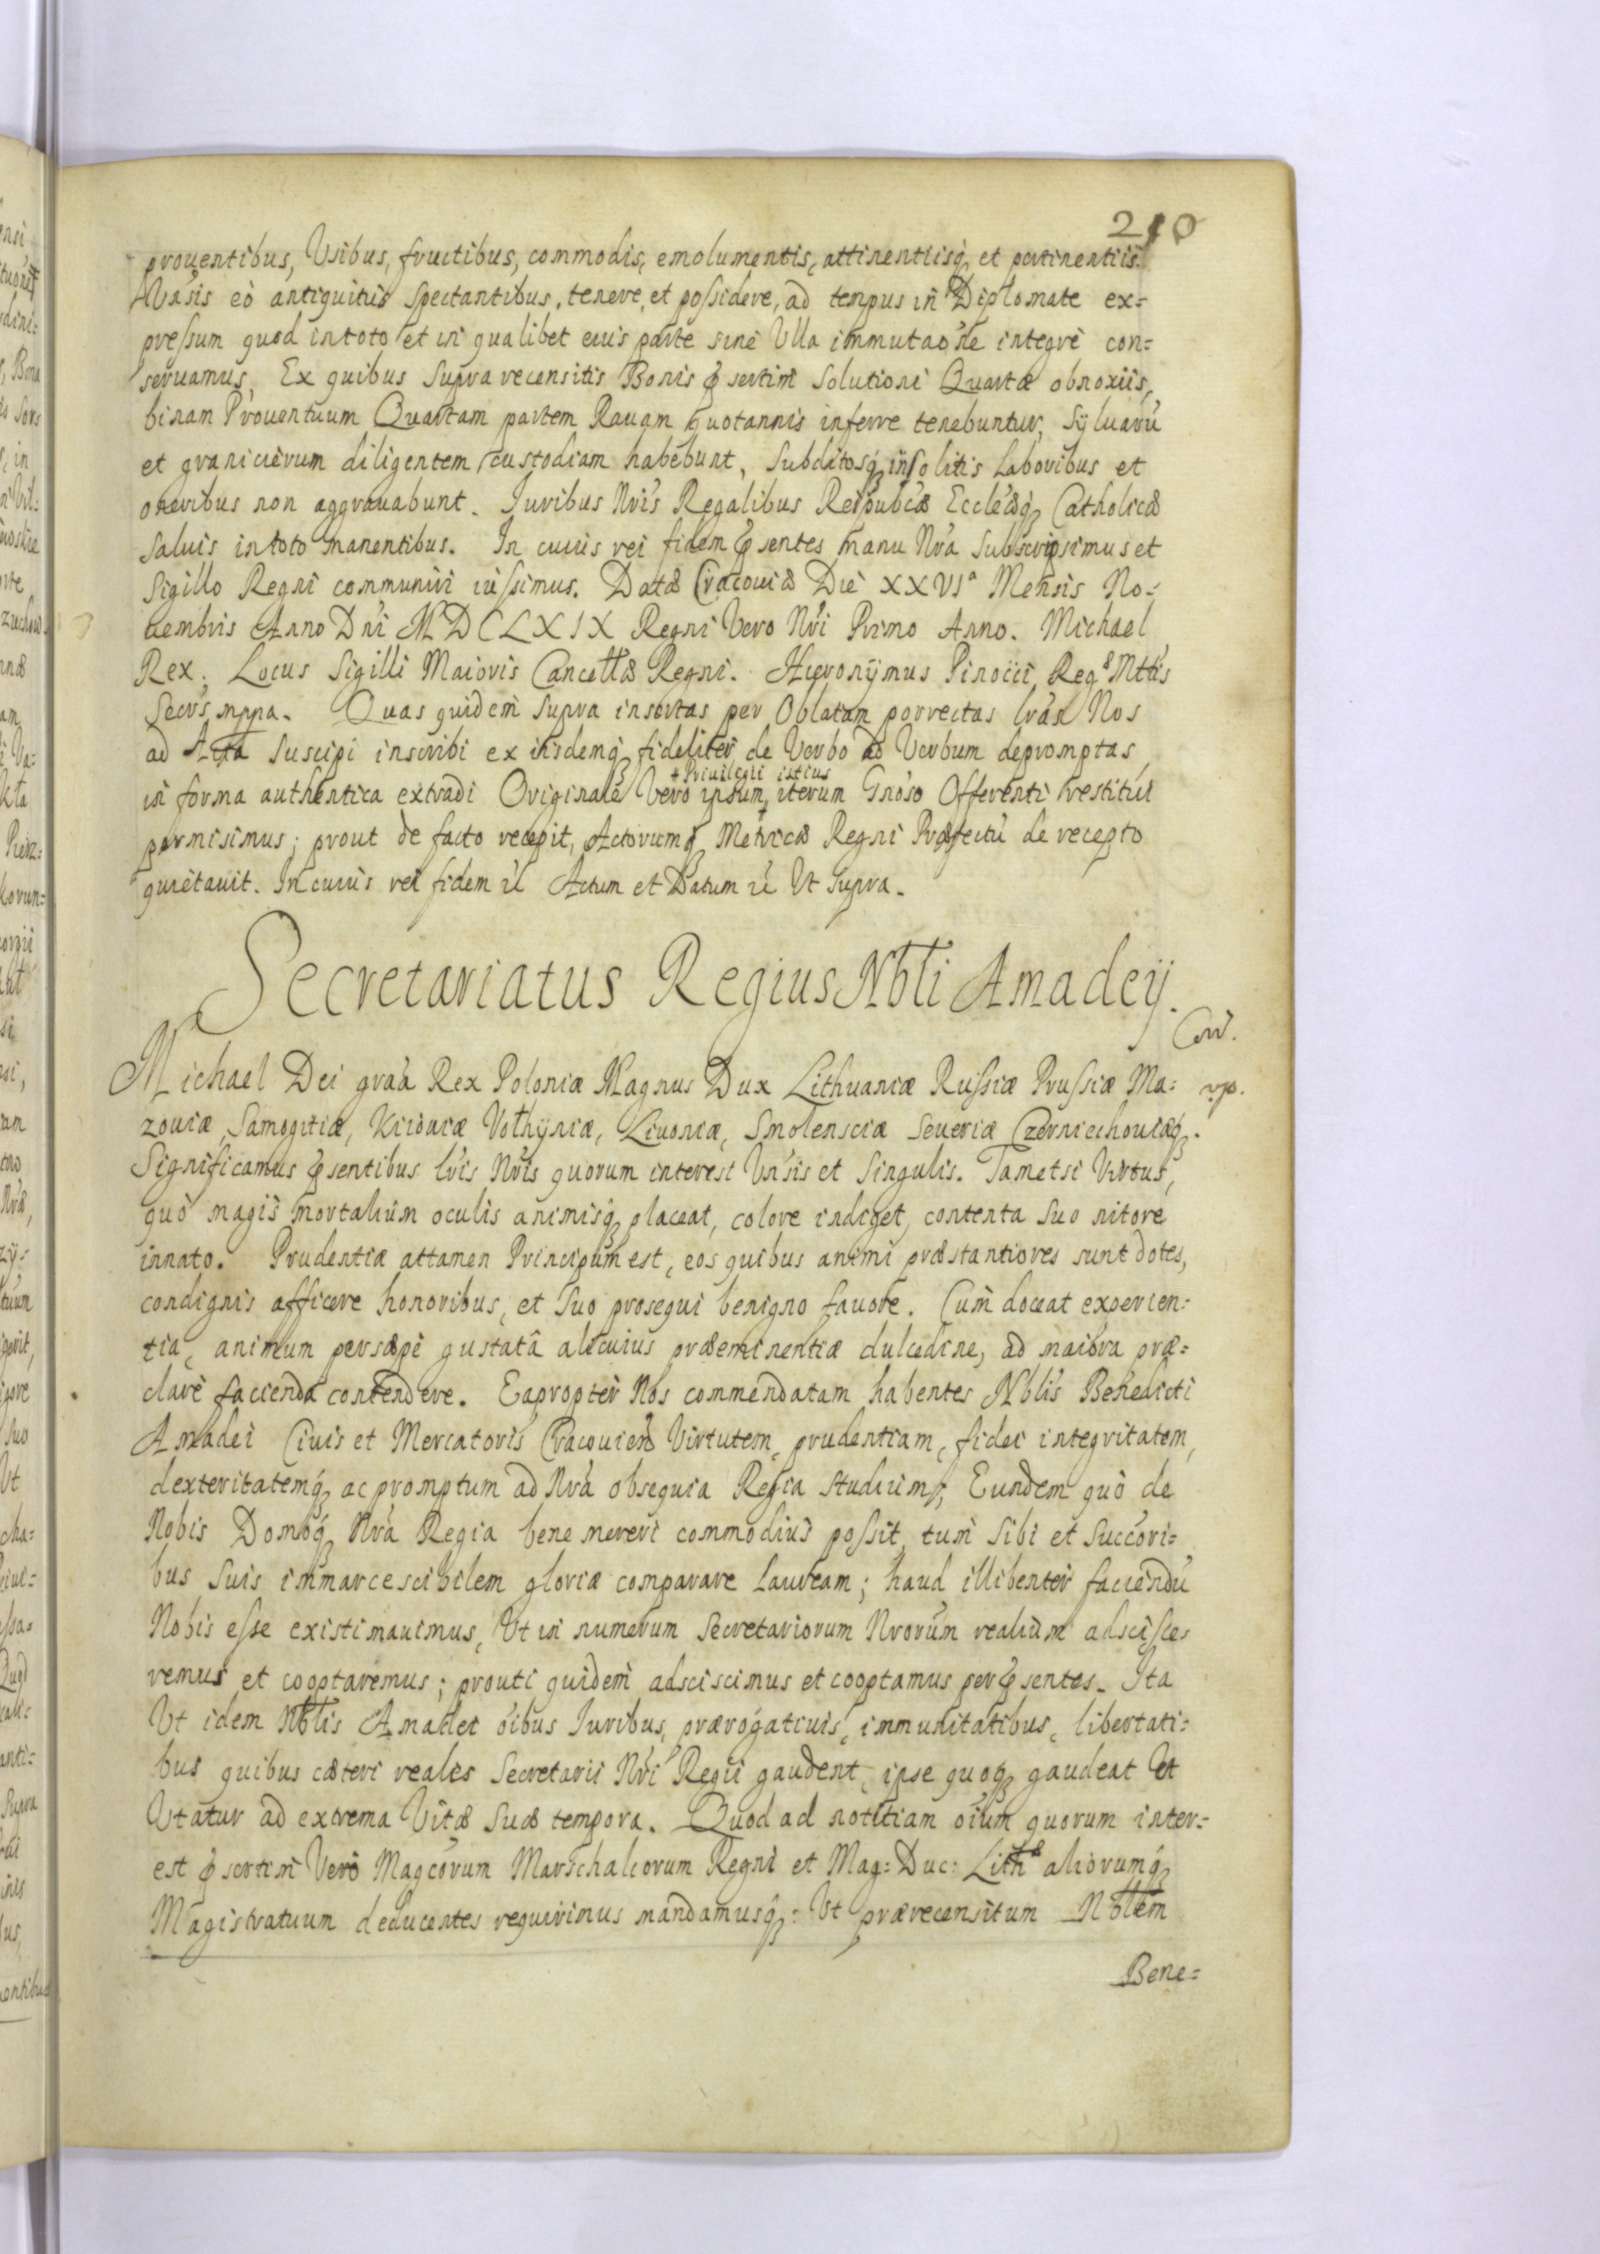 210
prouentibus, Usibus, fructibus, commodis, emolumentis, attinentiisq; et pertinentiis
Vnisis eò antiquitùs Spectantibus, tenere, et possidere, ad tempus in Diplomate ex=
pressum quod in toto et in qualibet eius parte sine Ulla immutaoñe integrè con=
seruamus, Ex quibus Supra recensitis Bonis p̃sertim Solutioni Quartæ obnoxiis,
binam Prouentuum Quartam partem Rauam quotannis inferre tenebuntur, Syluarũ
et granicierum diligentem custodiam habebunt, Subditosq; insolitis Laboribus et
oneribus non aggrauabunt. Iuribus Nris Regalibus Reipubcæ Eccleæq; Catholicæ
Saluis in toto manentibus. In cuius rei fidem p̃sentes manu Nra Subscripsimus et
Sigillo Regni communiri iussimus. Datæ Cracouiæ Die XXVIa Mensis No=
uembris Anno Dni MDCLXIX Regni Vero Nri Primo Anno. Michael
Rex. Locus Sigilli Maioris Cancellæ Regni. Hieronymus Pinocci Regæ Mttis
Secrs mppa. Quas quidem Supra insertas per Oblatam porrectas lrás Nos
ad Acta Suscipi inscribi ex iisdemq; fideliter de Verbo ad Verbum depromptas
+ Priuilegii istius
in forma authentica extradi Originale Vero ipsum + iterum Gnóso Offerenti restitui
permisimus; prout de facto recepit, Actorumq; Metricæ Regni Præfectũ de recepto
quietauit. In cuius rei fidem &c Actum et Datum &c Ut Supra.
Secretariatus Regius Nbli Amadeij.
Michael Dei graà Rex Poloniæ Magnus Dux Lithuaniæ Russiæ Prussiæ Ma=
zouiæ, Samogitiæ, Kiiouiæ Volhyniæ, Liuoniæ, Smolensciæ Seueriæ Czerniechouiæq;.
Significamus p̃sentibus lris Nris quorum interest Unsis et Singulis. Tametsi Virtus,
quò magis mortalium oculis animisq; placeat, colore indiget, contenta Suo nitore
innato. Prudentiæ attamen Principum est, eos quibus animi præstantiores sunt dotes,
condignis afficere honoribus, et Suo prosequi benigno fauore. Cum doceat experien=
tia, animum persæpè gustatâ alicuius præeminentiæ dulcedine, ad maiora præ=
clarè facienda contendere. Eapropter Nos commendatam habentes Nblis Benedicti
Amadei Ciuis et Mercatoris Cracouien Virtutem, prudentiam, fidei integritatem,
dexteritatemq; ac promptum ad Nra obsequia Regia studium, Eundem quò de
Nobis Domoq; Nra Regia bene mereri commodius possit, tum Sibi et Succori=
bus Suis immarcescibilem gloriæ comparare Lauream; haud illibenter faciendũ
Nobis esse existimauimus, Ut in numerum Secretariorum Nrorum realium adscisce=
remus et cooptaremus; prouti quidem adsciscimus et cooptamus per p̃sentes. Ita
Ut idem Nblis Amadei oibus Iuribus, prærogatiuis, immunitatibus, libertati=
bus quibus cæteri reales Secretarii Nri Regii gaudent, ipse quoq; gaudeat et
Utatur ad extrema Vitæ Suæ tempora. Quod ad notitiam oium quorum inter=
est p̃sertim Vero Magcorum Marschalcorum Regni et Mag: Duc: Lithæ aliorumq;
Magistratuum deducentes requirimus mandamusq;: Ut prærecensitum Nblem
Bene=